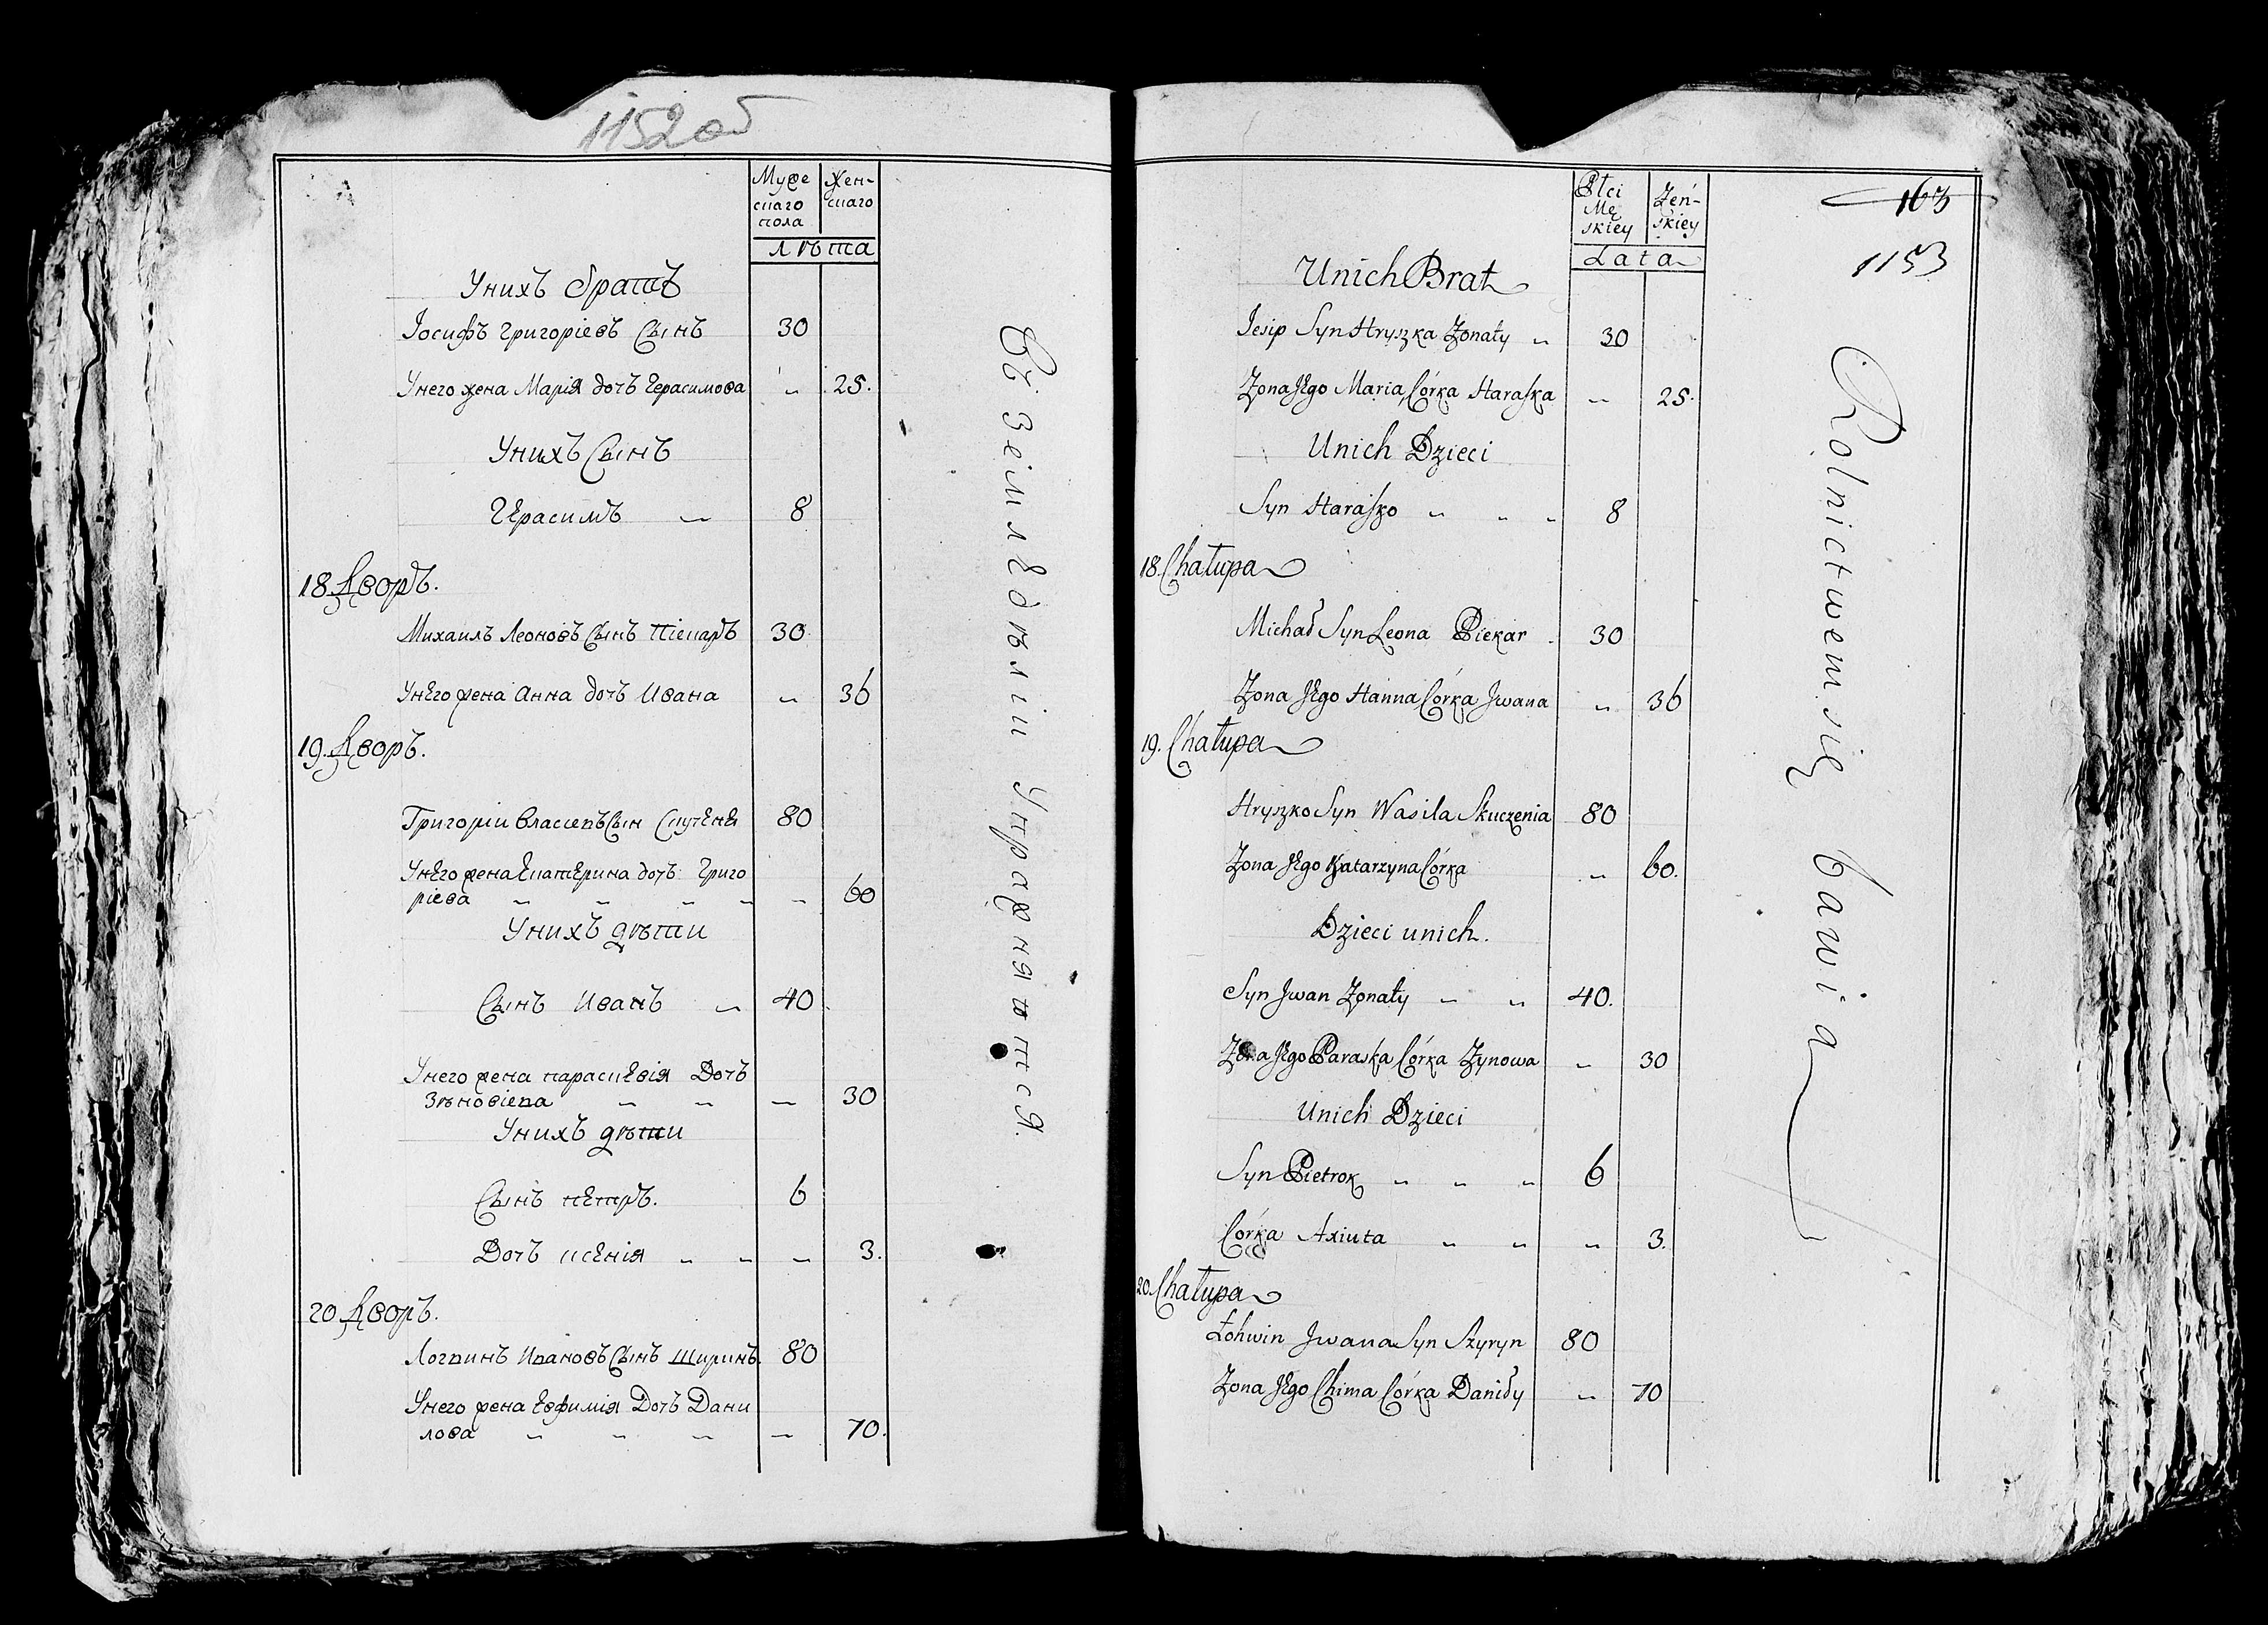 1152об
Муже
скаго
пола
Жен-
скаго
лѣта
Унихъ братъ
Іосифъ григоріевъ Сынъ 30
Унего жена Марія дочь Герасимова „ 25.
Унихъ Сынъ
Герасимъ „ 8
18 Дворъ.
Михаилъ Леоновъ Сынъ Піекаръ 30
Унего жена Анна дочь Ивана „ 36
19. Дворъ.
Григоріи Власіевъ Сын Скученя 80
Унего жена Екатерина дочь Григо
ріева „ „ „ „ „ 60
Унихъ дѣти
Сынъ Иванъ „ 40
Унего жена параскевія Дочь
Зѣновіева „ „ „ 30
Унихъ дѣти
Сынъ петръ. 6
Дочь ксенія „ „ „ 3.
20 Дворъ.
Логвинъ Ивановъ Сынъ Ширинъ. 80
Унего жена Евфимія Дочь Дани
лова „ „ „ „ 70.
Въ земледѣліи Упражняются.
Płci
Mę
skiey
Żeń-
skiey
Lata
163
1153
Unich Brat
Iesip Syn Hryszka Żonaty „ 30
Żona Jego Maria Córka Haraska „ 25.
Unich Dzieci
Syn Harasko „ „ „ 8
18. Chałupa
Michał Syn Leona Piekar 30
Żona Jego Hanna Córka Jwana „ 36
19. Chałupa
Hryszko Syn Wasila Skuczenia 80
Żona Jego Katarzyna Córka „ 60.
Dzieci unich.
Syn Jwan Żonaty „ „ 40.
Żona Jego Paraska Córka Zynowa „ 30
Unich Dzieci
Syn Pietrok „ „ „ 6
Córka Axiuta „ „ „ 3.
20. Chałupa
Łohwin Jwana Syn Szyryn 80
Żona Jego Chima Córka Daniły „ 70
Rolnictwem się bawią